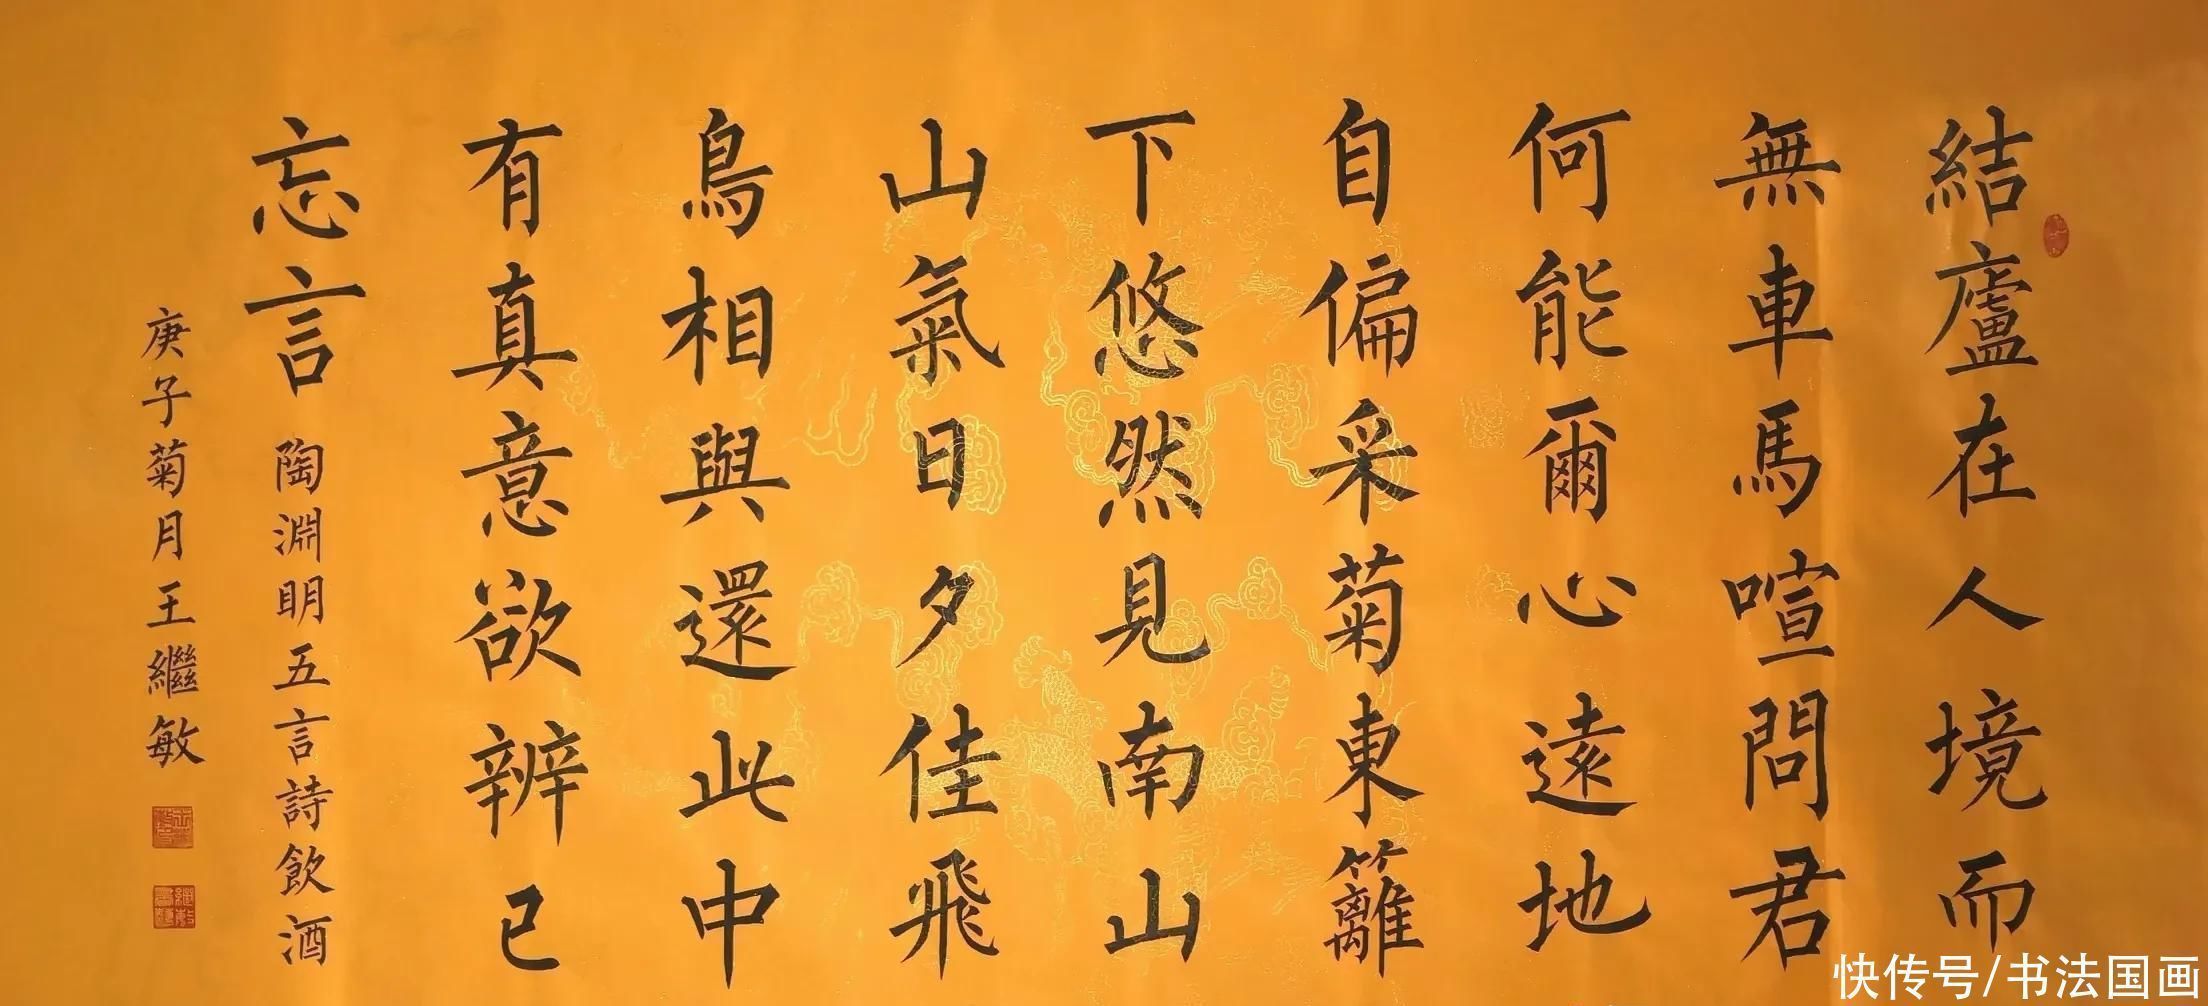 結廬在人境而
無車馬喧問君
何能爾心遠地
自偏采菊東籬
下悠然見南山
山氣日夕佳飛
鳥相與還此中
有真意欲辨已
忘言
陶淵明五言詩飲酒
庚子菊月王繼敏
快传号/书法国画